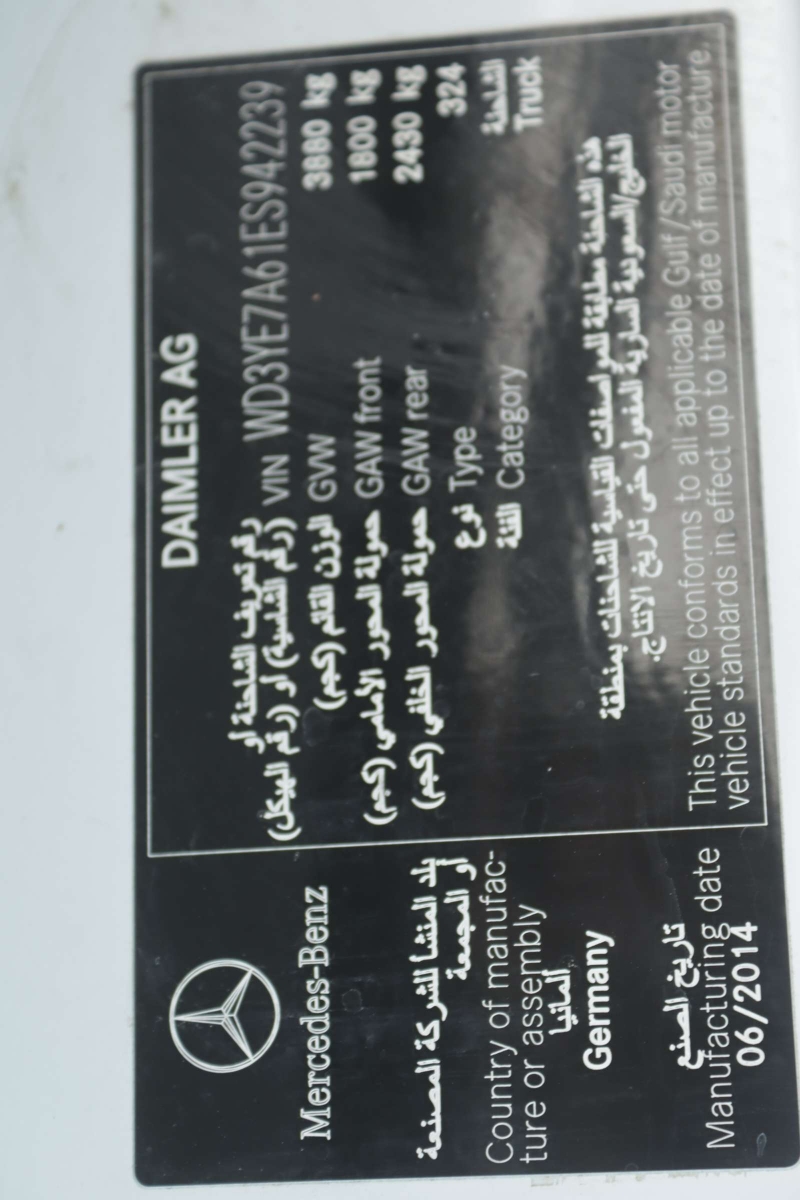 Mercedes-Benz
بلد المنشأ للشركة المصنعة
أو المجمعة
Country of manufac-
ture or assembly
ألمانيا
Germany
تاريخ الصنع
Manufacturing date
06/2014
DAIMLER AG
رقم تعريف الشاحنة أو
(رقم الشاسية) أو (رقم الهيكل) VIN WD3YE7A61ES942239
الوزن القائم (كجم) GVW 3880 kg
حمولة المحور الأمامي (كجم) GAW front 1800 kg
حمولة المحور الخلفي (كجم) GAW rear 2430 kg
نوع Type 324
الفئة Category الشاحنة
Truck
هذه الشاحنة مطابقة للمواصفات القياسية للشاحنات بمنطقة
الخليج/السعودية السارية المفعول حتى تاريخ الانتاج.
This vehicle conforms to all applicable Gulf/Saudi motor
vehicle standards in effect up to the date of manufacture.